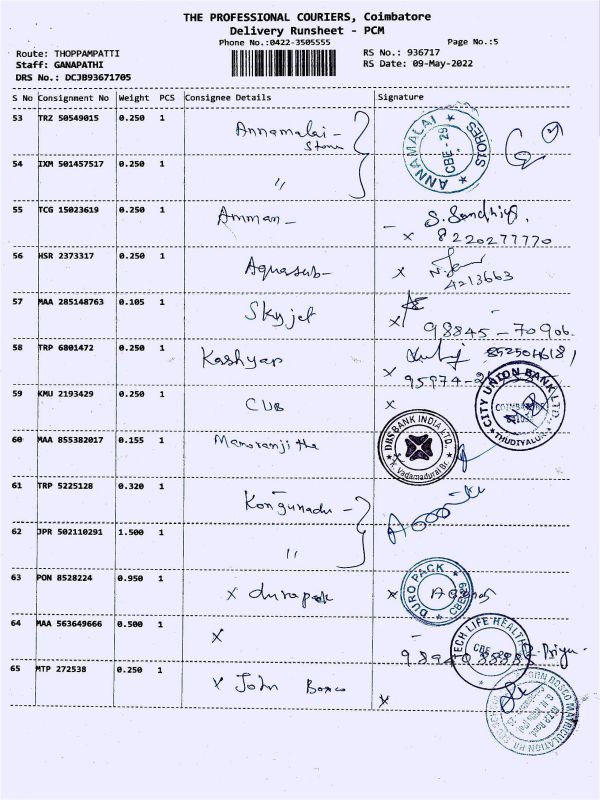 THE PROFESSIONAL COURIERS, Coimbatore
Delivery Runsheet - PCM
Phone No.:0422-3505555
Page No.:5
Route: THOPPAMPATTI
Staff: GANAPATHI
DRS No.: DCJB93671705
RS No.: 936717
RS Date: 09-May-2022
S No Consignment No Weight PCS Consignee Details Signature
53 TRZ 50549015 0.250 1 Annamalai - Stores
ANNAMALAI STORES CBE-29
54 IXM 501457517 0.250 1 "
55 TCG 15023619 0.250 1 Amman -
x 8220277770
56 HSR 2373317 0.250 1 Aquasub - x
4213663
57 MAA 285148763 0.105 1 Skyjet x
98845-70906
58 TRP 6801472 0.250 1 Kashyap
x
59 KMU 2193429 0.250 1 CUB x
CITY UNION BANK LTD., THUDIYALUR
60 MAA 855382017 0.155 1 Manoranjitha
DBS BANK INDIA LTD., K. Vadamadurai Br.
61 TRP 5225128 0.320 1 Kongunadu -
62 JPR 502110291 1.500 1 "
63 PON 8528224 0.950 1 x durapack x
DURO PACK CBE-29
64 MAA 563649666 0.500 1 x
TECH LIFE HEALTH CBE
65 MTP 272538 0.250 1 x John Bosco x
JOHN BOSCO MATRICULATION HR. SEC.